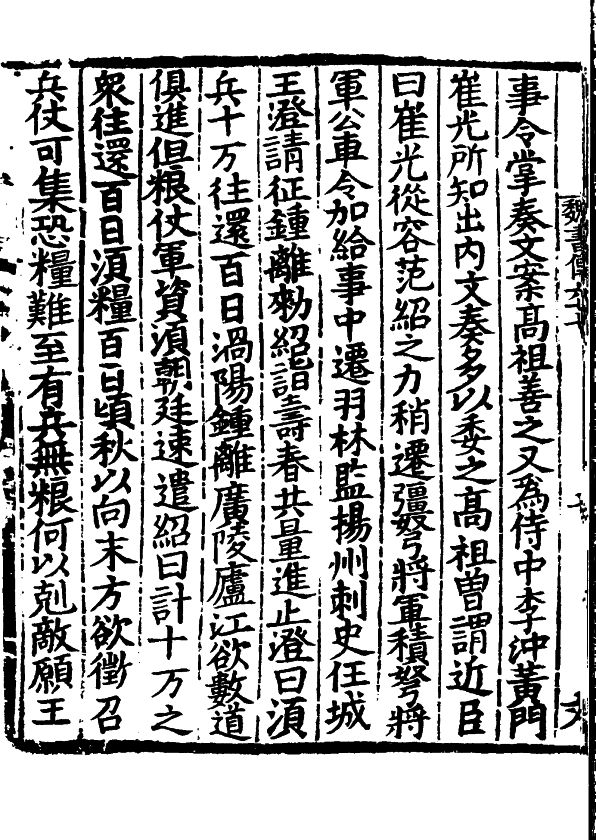 事令掌奏文案髙祖善之又爲侍中李沖黃門
崔光所知出内文奏多以委之髙祖曽謂近臣
曰崔光從容范紹之力稍遷彊弩將軍積弩將
軍公車令加給事中遷羽林監揚州刺史任城
王澄請征鍾離勑紹詣壽春共量進止澄曰湏
兵十万往還百日渦陽鍾離廣陵廬江欲數道
俱進但粮仗軍資湏朝廷速遣紹曰計十万之
衆往還百日湏糧百日頃秋以向末方欲徵召
兵仗可集恐糧難至有兵無粮何以剋敵願王
魏書傳